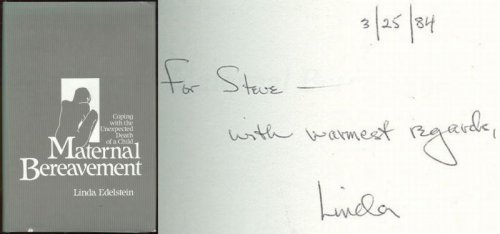 Coping
with the
Unexpected
Death
of a Child
Maternal
Bereavement
Linda Edelstein
3/25/84
For Steve —
with warmest regards,
Linda